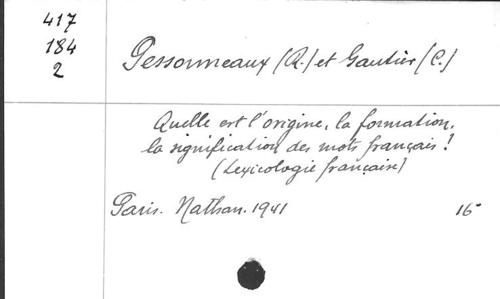 417
184
2
Pessonneaux (R.) et Gautier (C.)
Quelle est l'origine, la formation,
la signification des mots français!
(Lexicologie française)
Paris. Nathan. 1941 16°